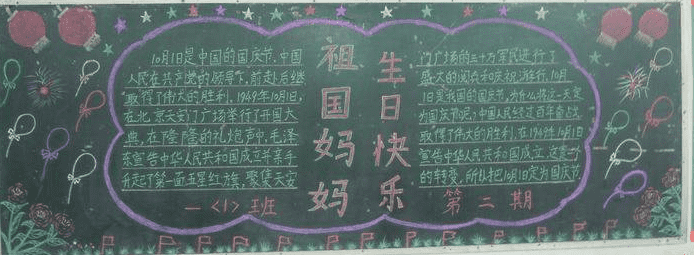 10月1日是中国的国庆节,中国
人民在共产党的领导下,前赴后继
取得了伟大的胜利,1949年10月1日,
在北京天安门广场举行了开国大
典,在隆隆的礼炮声中,毛泽
东宣告中华人民共和国成立并亲手
升起了第一面五星红旗,聚集天安
一<1>班
祖国妈妈
生日快乐
门广场的三十万军民进行了
盛大的阅兵和庆祝游行,10月
1日是我国的国庆节,为什么将这一天定
为国庆节呢,中国人民经过百年奋战
取得了伟大的胜利,在1949年10月1日
宣告中华人民共和国成立,这是
的转变,所以把10月1日定为国庆节
第二期